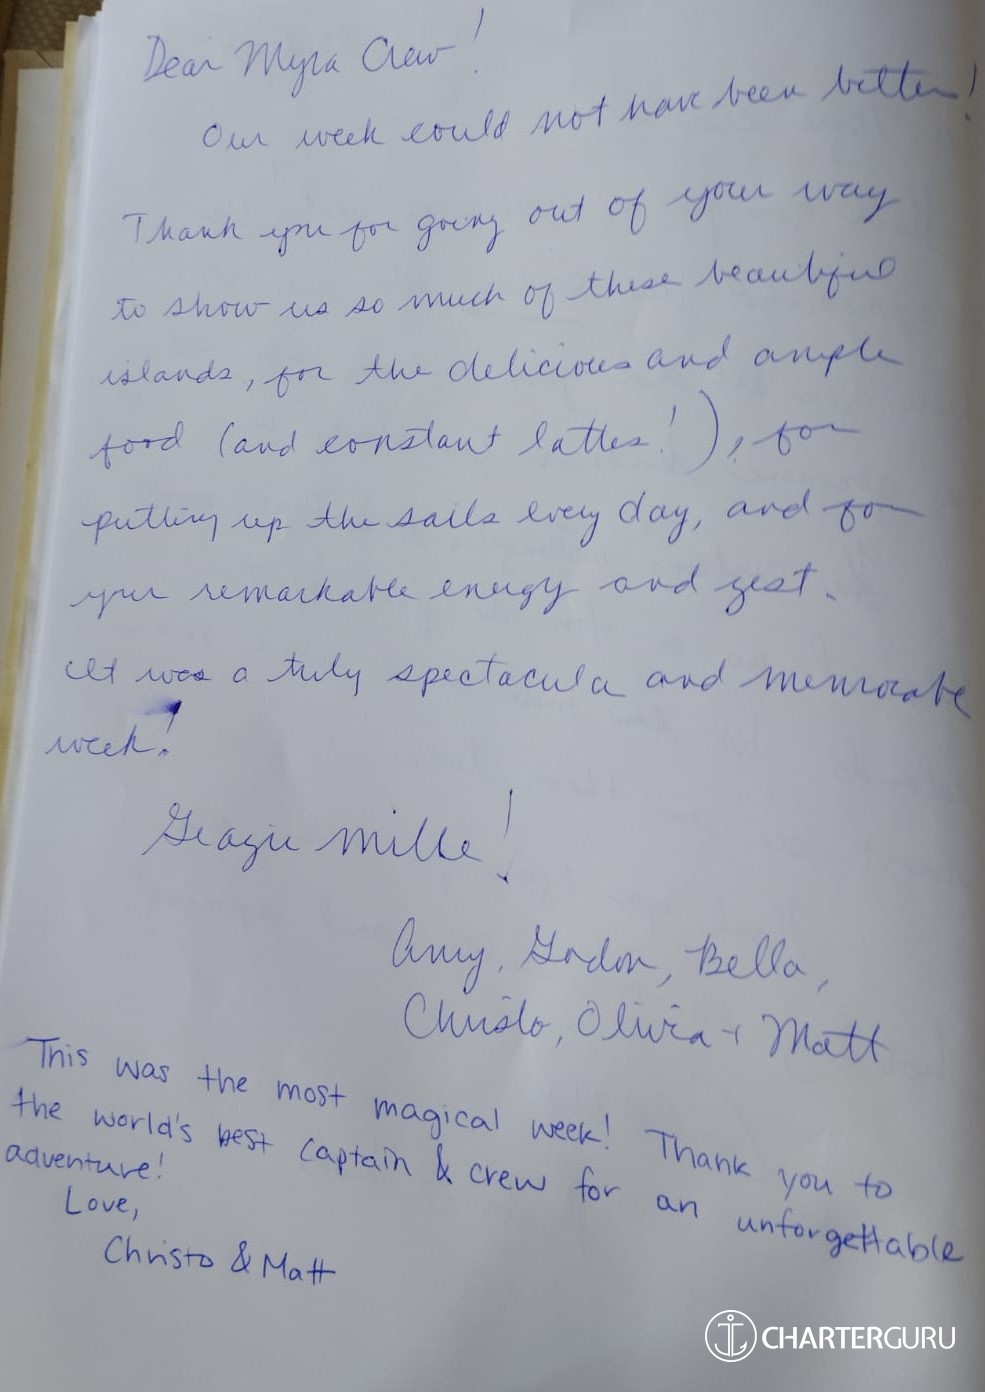 Dear Myra Crew!
Our week could not have been better!
Thank you for going out of your way
to show us so much of these beautiful
islands, for the delicious and ample
food (and constant lattes!), for
putting up the sails every day, and for
your remarkable energy and zest.
It was a truly spectacular and memorable
week!
Grazie mille!
Amy, Gordon, Bella,
Christo, Olivia + Matt
This was the most magical week! Thank you to
the world's best captain & crew for an unforgettable
adventure!
Love,
Christo & Matt
CHARTERGURU